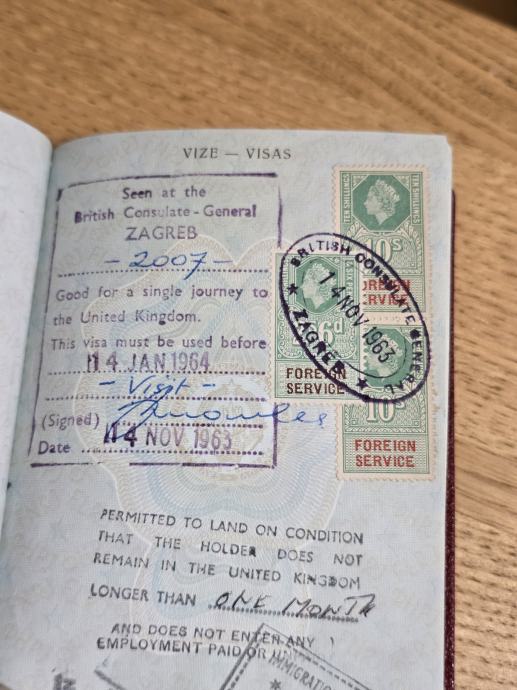 VIZE — VISAS
Seen at the
British Consulate-General
ZAGREB
- 2007 -
Good for a single journey to
the United Kingdom.
This visa must be used before
14 JAN 1964
- Visit -
(Signed)
Date 14 NOV 1963
TEN SHILLINGS
TEN SHILLINGS
10s
FOREIGN
SERVICE
6d
FOREIGN
SERVICE
10s
FOREIGN
SERVICE
BRITISH CONSULATE GENERAL
14 NOV 1963
ZAGREB
PERMITTED TO LAND ON CONDITION
THAT THE HOLDER DOES NOT
REMAIN IN THE UNITED KINGDOM
LONGER THAN ONE MONTH
AND DOES NOT ENTER ANY
EMPLOYMENT PAID OR
IMMIGRATION